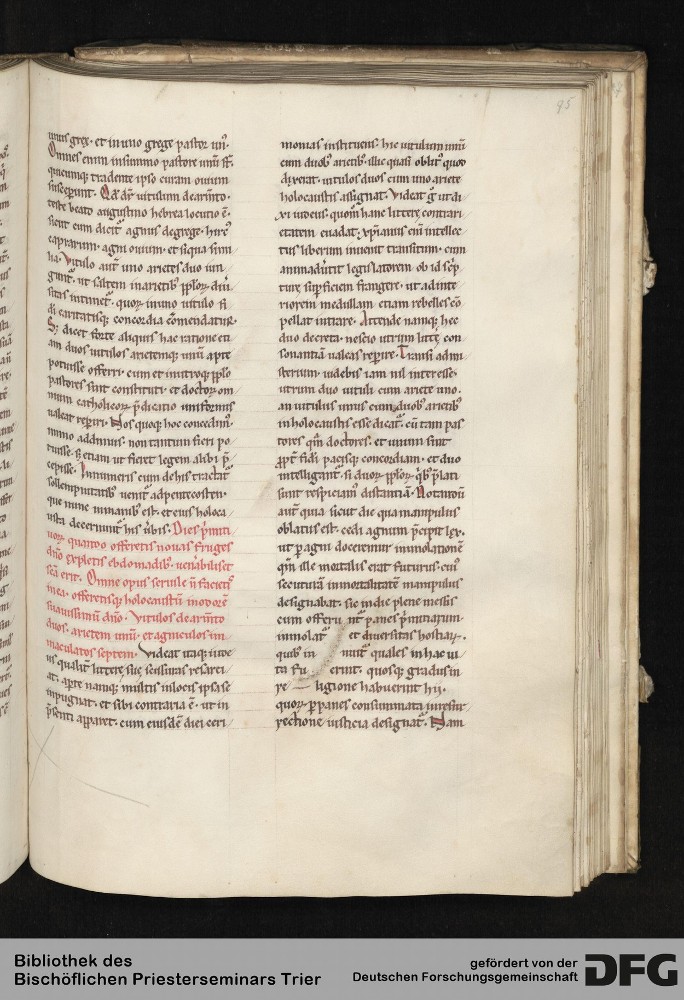 95
unus grex · et in uno grege pastor un᷒ ·
Omnes enim in summo pastore unū st̄
quicumq; tradente ipso curam ouium
susceperunt · Qd̄ dr̄ uitulum de armto ·
teste beato augustino hebrea locutio ē ·
sicut cum dicit᷑ agnus de grege · hirc᷒
caprarum · agni ouium · et siqua simi
lia · Vitulo aut̄ uno arietes duo iun
gunt᷑ · ut saltem in arietib᷒ pplor̄ diū
sitas intimet᷑ · quor̄ in uno uitulo fi
dī caritatisq; concordia cōmendatur ·
S; dicet forte aliquis hac ratione eti
am duos uitulos arietemq; unū apte
potuisse offerri · cum et in utroq; pplo
pastores sunt constituti · et doctor̄ om
nium catholicor̄ p̄dicatio uniformis
ualeat rep̄iri · Nos quoq; hoc concedim᷒ ·
immo addimus · non tantum fieri po
tuisse · s; etiam ut fieret legem alibi p̄
cepisse · In numeris enim de his tractat᷑
sollemptatibus · uenit᷑ ad pentecosten ·
que nunc in manib᷒ est · et eius holoca
usta decernunt᷑ his ūbis · Dies p̄miti
uor̄ quando offeretis nouas fruges
dn̄o expletis ebdomadib᷒ · uen̄abilis et
scā erit · Omne opus seruile n̄ facietis
in ea · offeretisq; holocaustū in odorē
suauissimū dn̄o · Vitulos de armto
duos · arietem unū · et agniculos in
maculatos septem · Videat itaq; iude
us qualit᷑ littere suę scissuras resarci
at · aperte namq; multis in locis ipsa se
inpugnat · et sibi contraria ē · ut in
p̄senti apparet · cum eiusdē diei ceri
monias instituens · hic uitulum unū
cum duob᷒ arietib᷒ · illic quasi oblit᷒ quod
dixerat · uitulos duos cum uno ariete
holocaustis assignat · Videat g̊ ut di
xi iudeus · quom̊ hanc litterę contrari
etatem euadat · xp̄ianus eni intellec
tus liberum inuenit transitum · cum
animaduertit legislatorem ob id scrip
turę sup̄ficiem frangere · ut ad inte
riorem medullam etiam rebelles cō
pellat intrare · Attende namq; hec
duo decreta · nescio utrum litterę con
sonantiā ualeas rep̄ire · Transi ad mi
sterium · uidebis iam nil interesse ·
utrum duo uituli cum ariete uno ·
an uitulus unus cum duob᷒ arietib᷒
in holocaustis esse dicat᷑ · cū tam pas
tores qm̄ doctores · et unum sint
ppt᷑ fidī pacisq; concordiam · et duo
intelligant᷑ · si duor̄ pplor̄ q̊b᷒ p̄lati
sunt respiciam᷒ distantiā · Notandū
aut̄ quia sicut die qua manipulus
oblatus est · cedi agnum p̄cipit lex ·
ut p agni doceremur immolationē
qm̄ ille mortalis erat futurus · cui᷒
secuturā inmortalitatē manipulus
designabat · sic in die plene messis
cum offerunt᷑ panes p̄mitiarum ·
inmolat᷑ et diuersitas hostiar̄ ·
quib᷒ in nuit᷑ quales in hac ui
ta fu erint · quosq; gradus in
re ligione habuerint hii ·
quor̄ p panes consummata in resur
rectione iusticia designat᷑ · Nam
Bibliothek des
Bischöflichen Priesterseminars Trier
gefördert von der
Deutschen Forschungsgemeinschaft
DFG